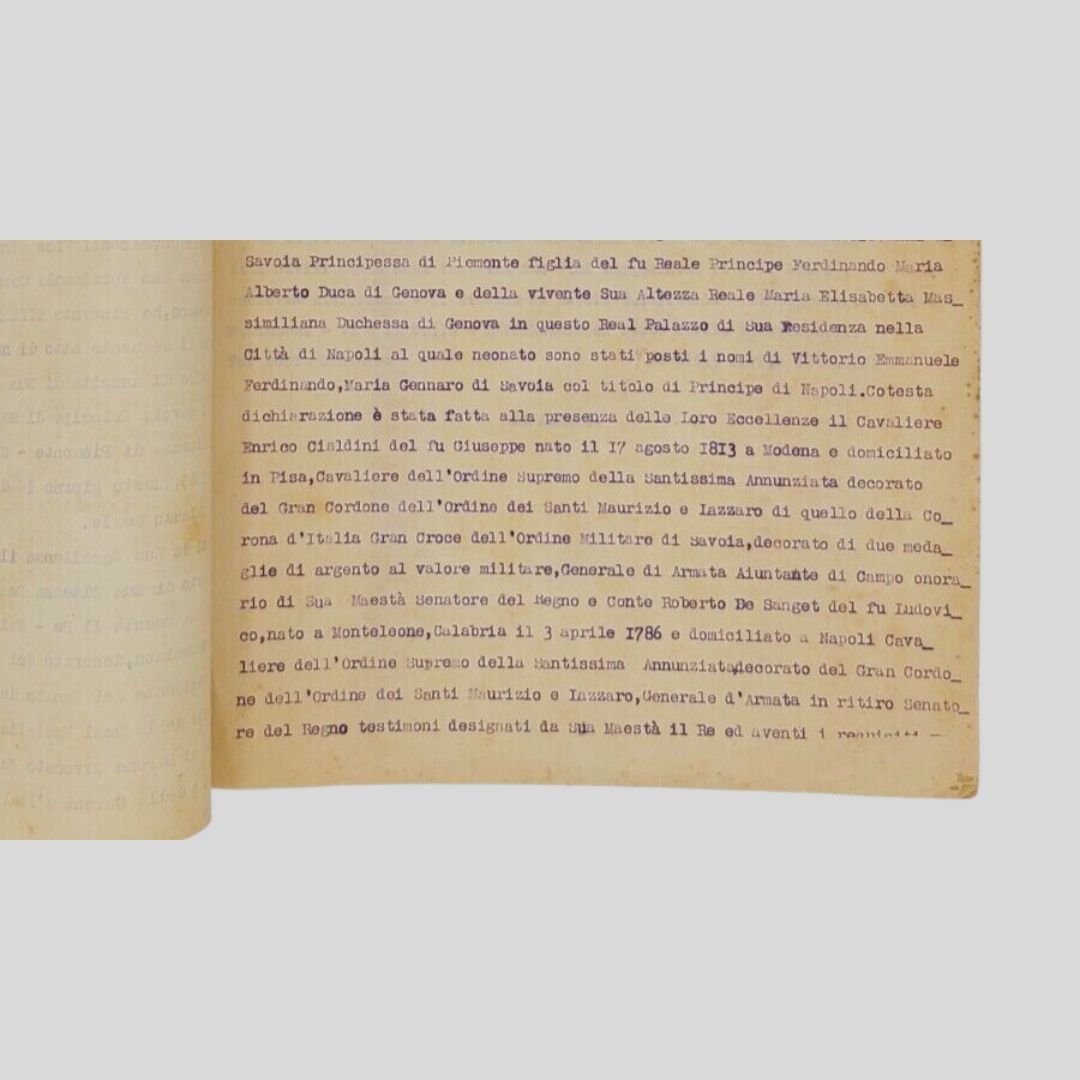 Savoia Principessa di Piemonte figlia del fu Reale Principe Ferdinando Maria
Alberto Duca di Genova e della vivente Sua Altezza Reale Maria Elisabetta Mas_
similiana Duchessa di Genova in questo Real Palazzo di Sua Residenza nella
Città di Napoli al quale neonato sono stati posti i nomi di Vittorio Emmanuele
Ferdinando,Maria Gennaro di Savoia col titolo di Principe di Napoli.Cotesta
dichiarazione è stata fatta alla presenza delle Loro Eccellenze il Cavaliere
Enrico Cialdini del fu Giuseppe nato il I7 agosto I8I3 a Modena e domiciliato
in Pisa,Cavaliere dell'Ordine Supremo della Santissima Annunziata decorato
del Gran Cordone dell'Ordine dei Santi Maurizio e Lazzaro di quello della Co_
rona d'Italia Gran Croce dell'Ordine Militare di Savoia,decorato di due meda_
glie di argento al valore militare,Generale di Armata Aiuntante di Campo onora_
rio di Sua Maestà Senatore del Regno e Conte Roberto De Sanget del fu Ludovi_
co,nato a Monteleone,Calabria il 3 aprile I786 e domiciliato a Napoli Cava_
liere dell'Ordine Supremo della Santissima Annunziata,decorato del Gran Cordo_
ne dell'Ordine dei Santi Maurizio e Lazzaro,Generale d'Armata in ritiro Senato_
re del Regno testimoni designati da Sua Maestà il Re ed aventi i requisiti -